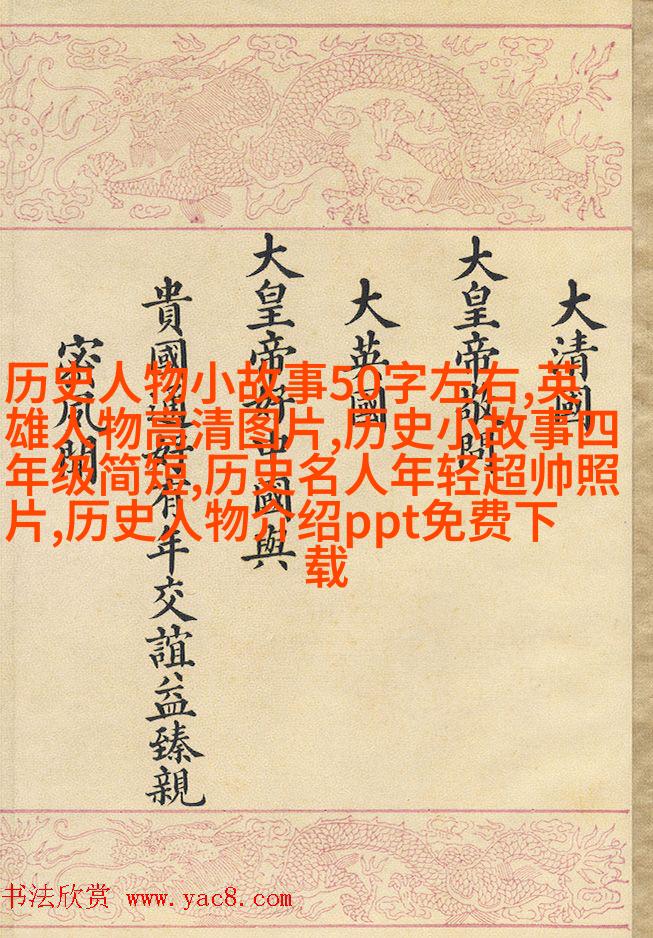 大清國
大皇帝敬問
大英國
大皇帝好中國與
貴國通好有年交誼益臻親
密夙聞
历史人物小故事50字左右,英
雄人物高清图片,历史小故事四
年级简短,历史名人年轻超帅照
片,历史人物介绍ppt免费下
载
书法欣赏 www.yac8.com